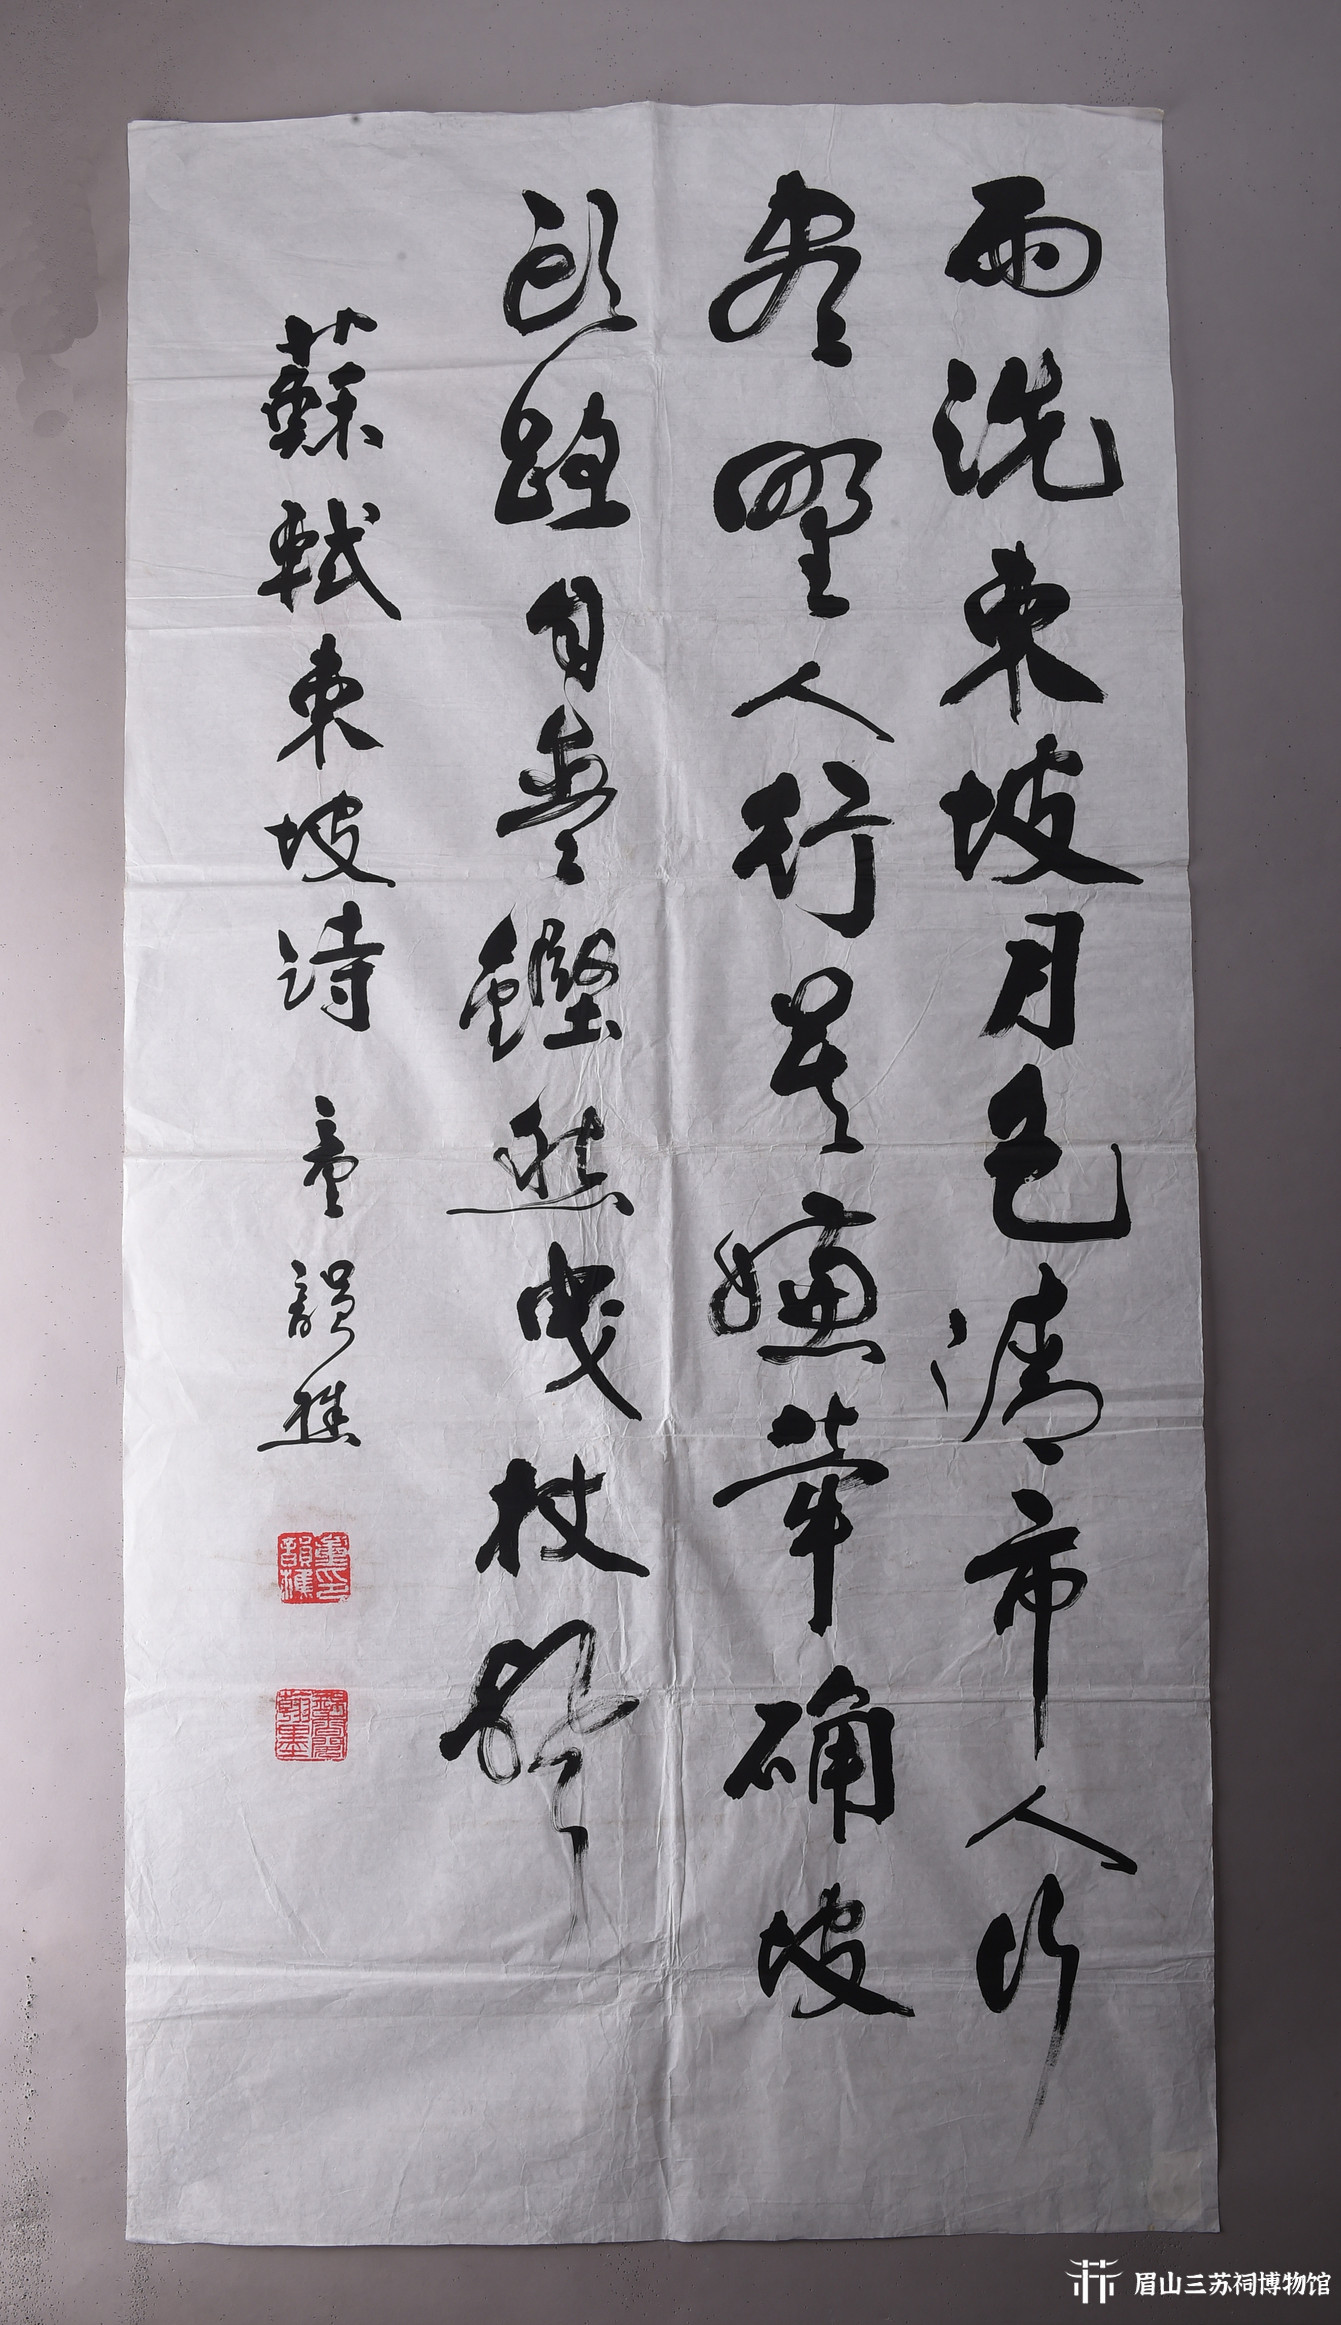 雨洗東坡月色清市人行
盡野人行莫嫌荦确坡
頭路自愛鏗然曳杖聲
蘇軾東坡詩 童韻樵
童印韻樵
翰墨
眉山三苏祠博物馆